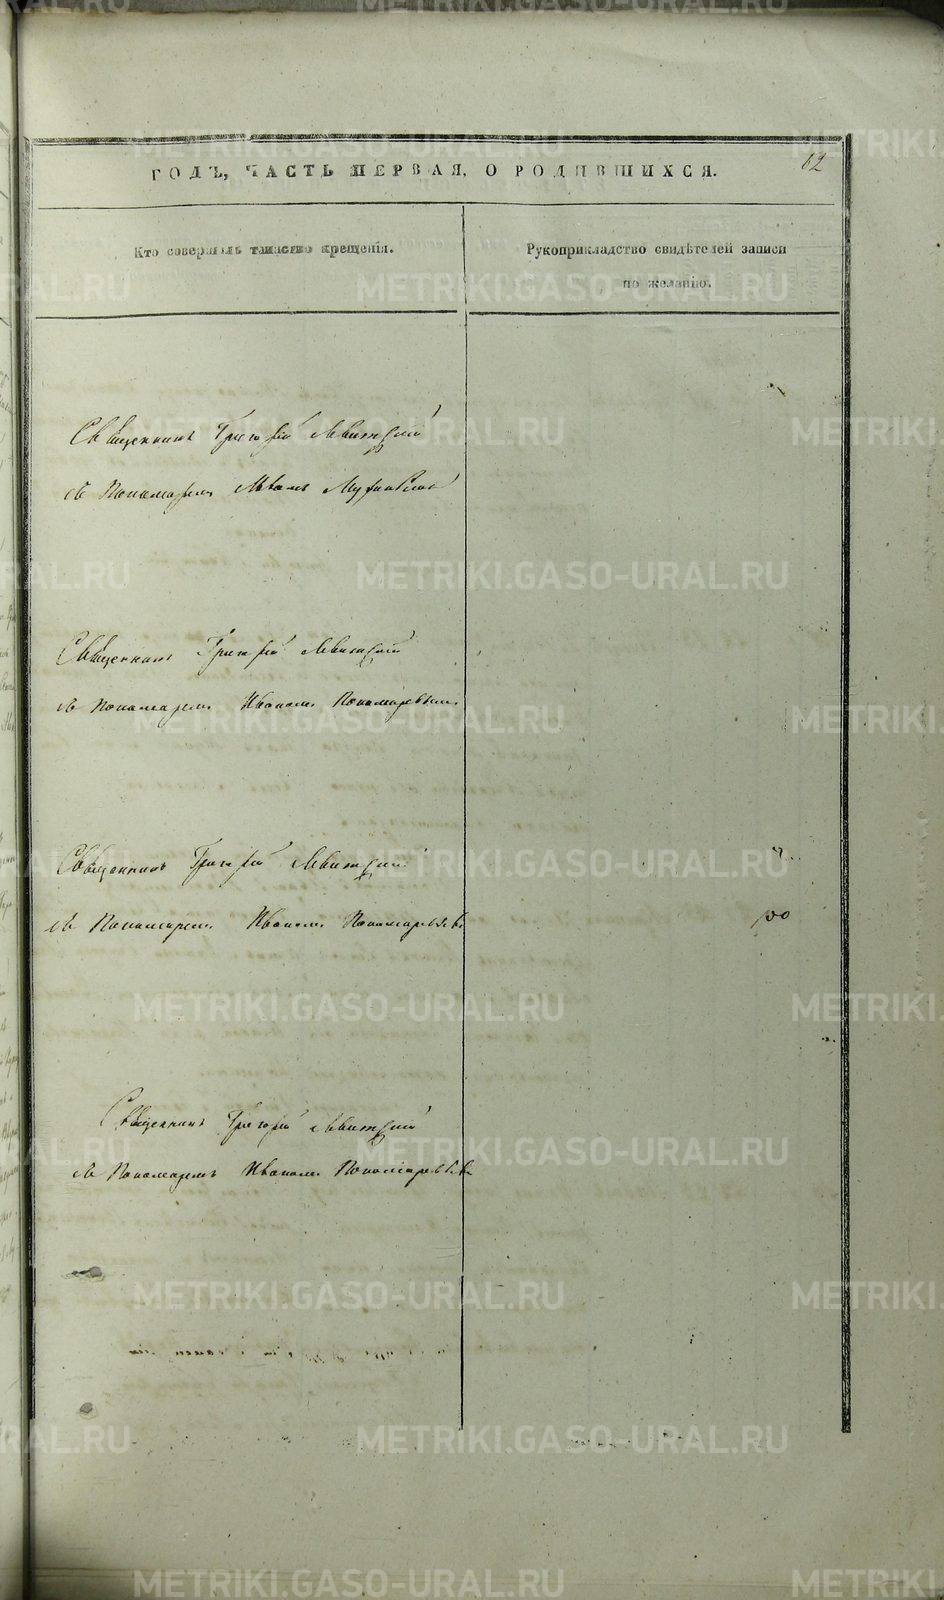 62
ГОДЪ, ЧАСТЬ ПЕРВАЯ, О РОДИВШИХСЯ.
Кто совершилъ таинство крещенія.
Рукоприкладство свидѣтелей записи
по желанію.
Священникъ Григорій Левитскій
съ Пономаремъ
Священникъ Григорій Левитскій
съ Пономаремъ Иваномъ Пономаревымъ
Священникъ Григорій Левитскій
съ Пономаремъ Иваномъ Пономаревымъ
Священникъ Григорій Левитскій
съ Пономаремъ Иваномъ Пономаревымъ
METRIKI.GASO-URAL.RU